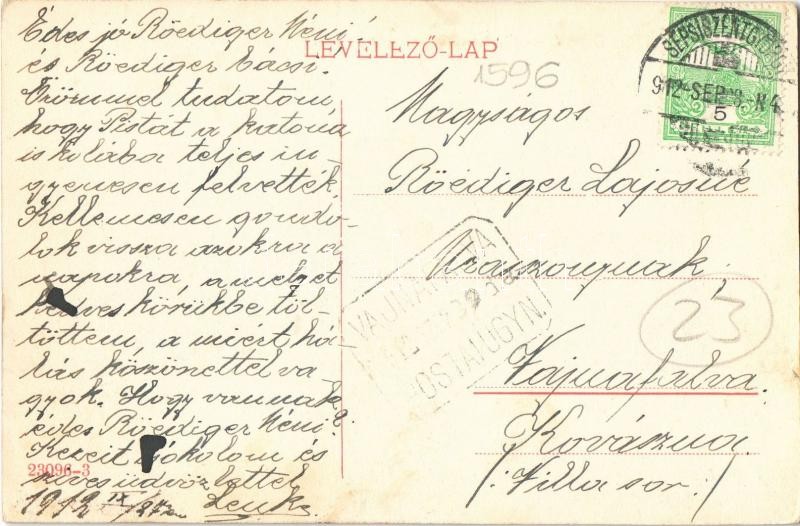 Édes jó Röediger Néni
és Röediger bácsi.
Örömmel tudatom,
hogy Pistát a katona
iskolába teljes in-
gyenesen felvették.
Kellemesen gondo-
lok vissza azokra a
napokra, a melyet
kedves körükbe töl-
töttem, a miért há-
lás köszönettel va
gyok. Hogy vannak
édes Röediger Néni?
Kezeit csókolom és
szíves üdvözlettel
1912 IX/27
LEVELEZŐ-LAP
1596
SEPSISZENTGYÖRGY
912 SEP N4
5
Nagyságos
Röediger Lajosné
Úrasszonynak,
VAJNAFALVA
POSTAIÜGYN.
23
Vajnafalva.
Kovászna
(Villa sor.)
23096-3